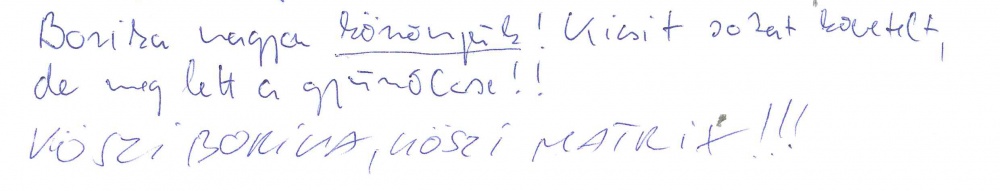 Borika nagyon köszönjük! Kicsit sokat követelt,
de meg lett a gyümölcse!!
KÖSZI BORIKA, KÖSZI MÁTRIX!!!